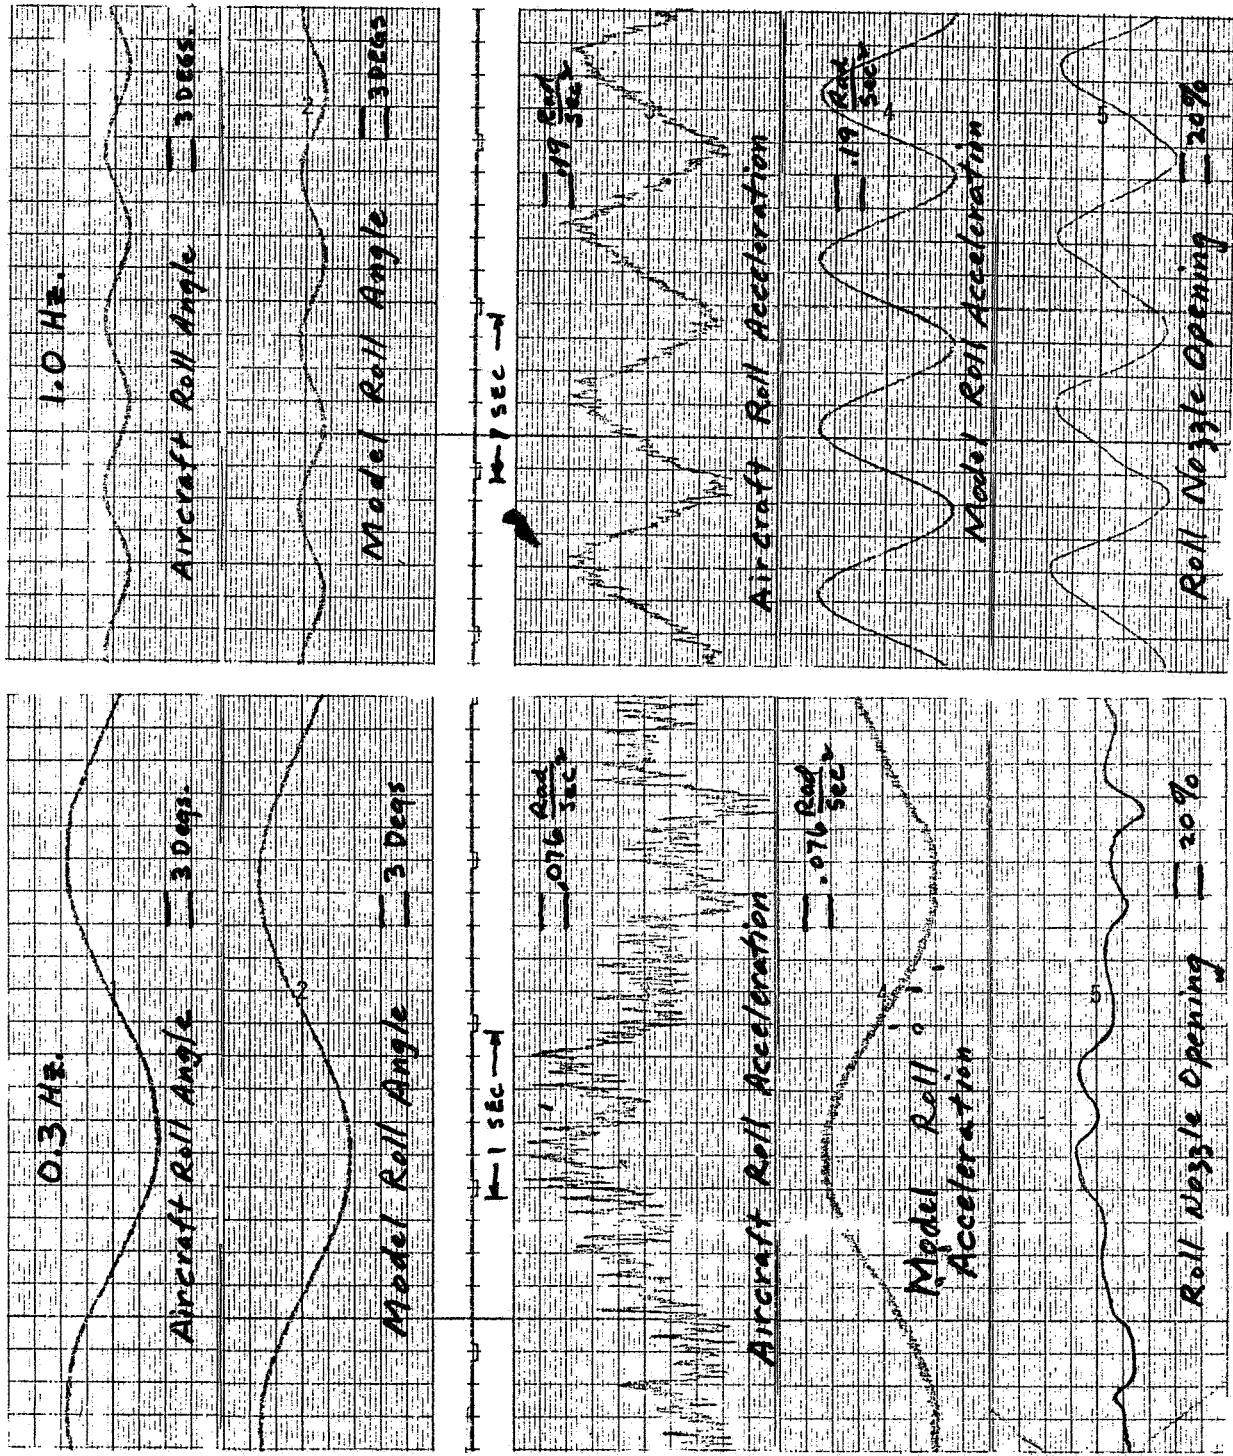 0.3 Hz.
1
3 Degs.
Aircraft Roll Angle
2
3 Degs
Model Roll Angle
1 SEC
.076 Rad
Sec2
Aircraft Roll Acceleration
.076 Rad
Sec2
Model Roll
Acceleration
5
20%
Roll Nozzle Opening
1.0 Hz.
1
3 DEGS.
Aircraft Roll Angle
2
3 DEGS
Model Roll Angle
1 SEC
.19 Rad
Sec2
Aircraft Roll Acceleration
.19 Rad
Sec2
4
Model Roll Acceleration
5
20%
Roll Nozzle Opening